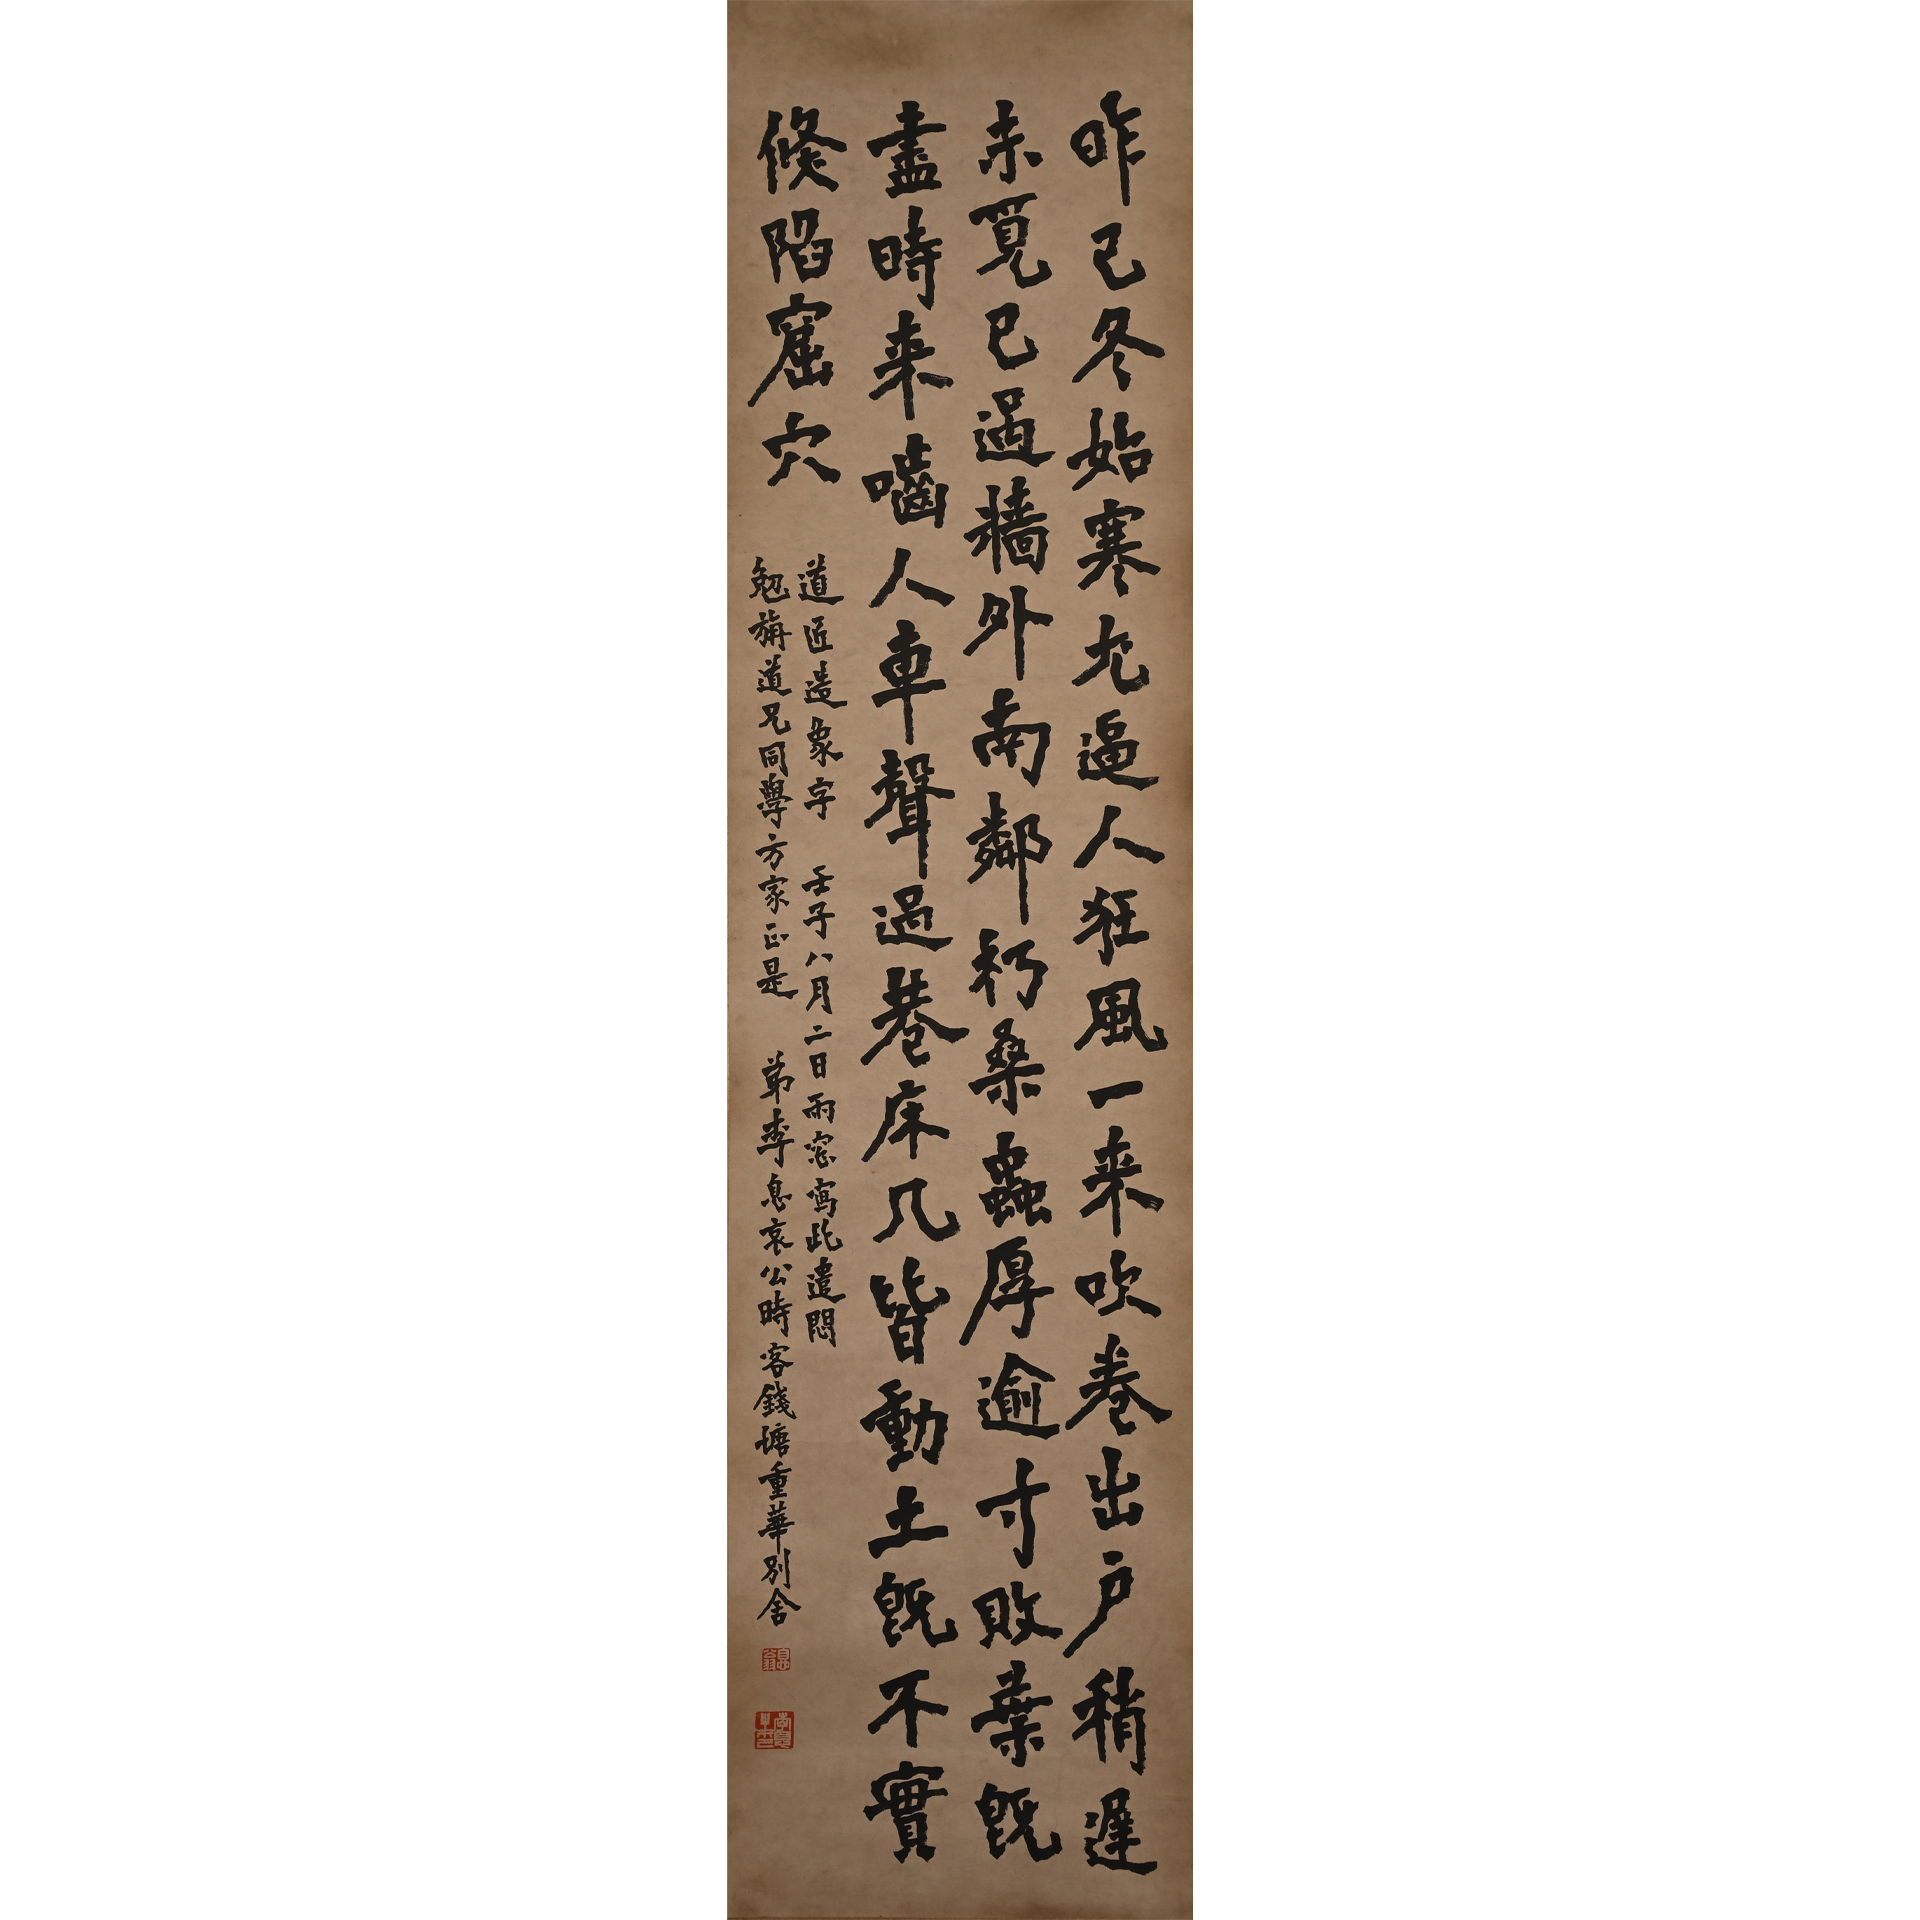 昨已冬始寒尤逼人狂風一来吹卷出戶稍遲
未覓已過牆外南鄰朽桑蟲厚逾寸敗葉既
盡時来嚙人車聲過巷床几皆動土既不實
倏陷窟穴
道匠造象字　壬子八月二日雨窓寫此遣悶
勉旃道兄同學方家正是　弟李息哀公時客錢塘重華別舍
息翁